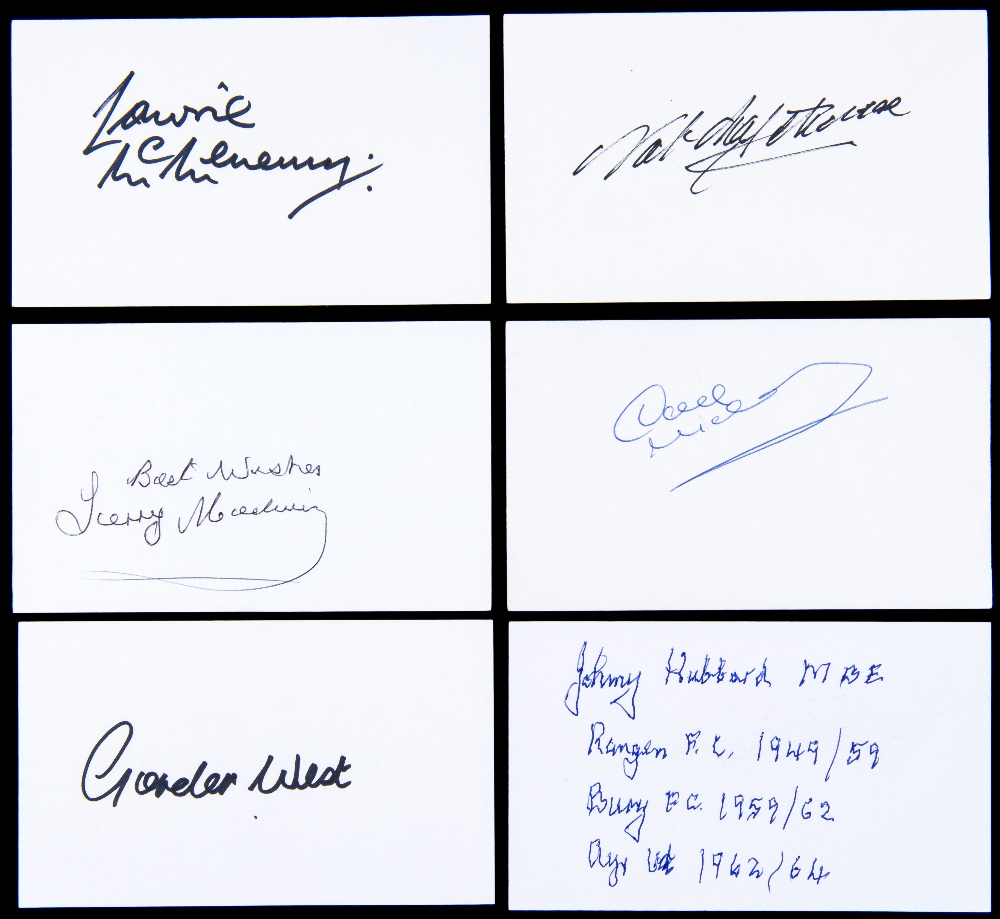 Lawrie
McMenemy.
Nat Lofthouse
Best Wishes
Terry
Gordon West
Johnny Hubbard MBE
Rangers F.C. 1949/59
Bury FC. 1959/62
Ayr Utd 1962/64